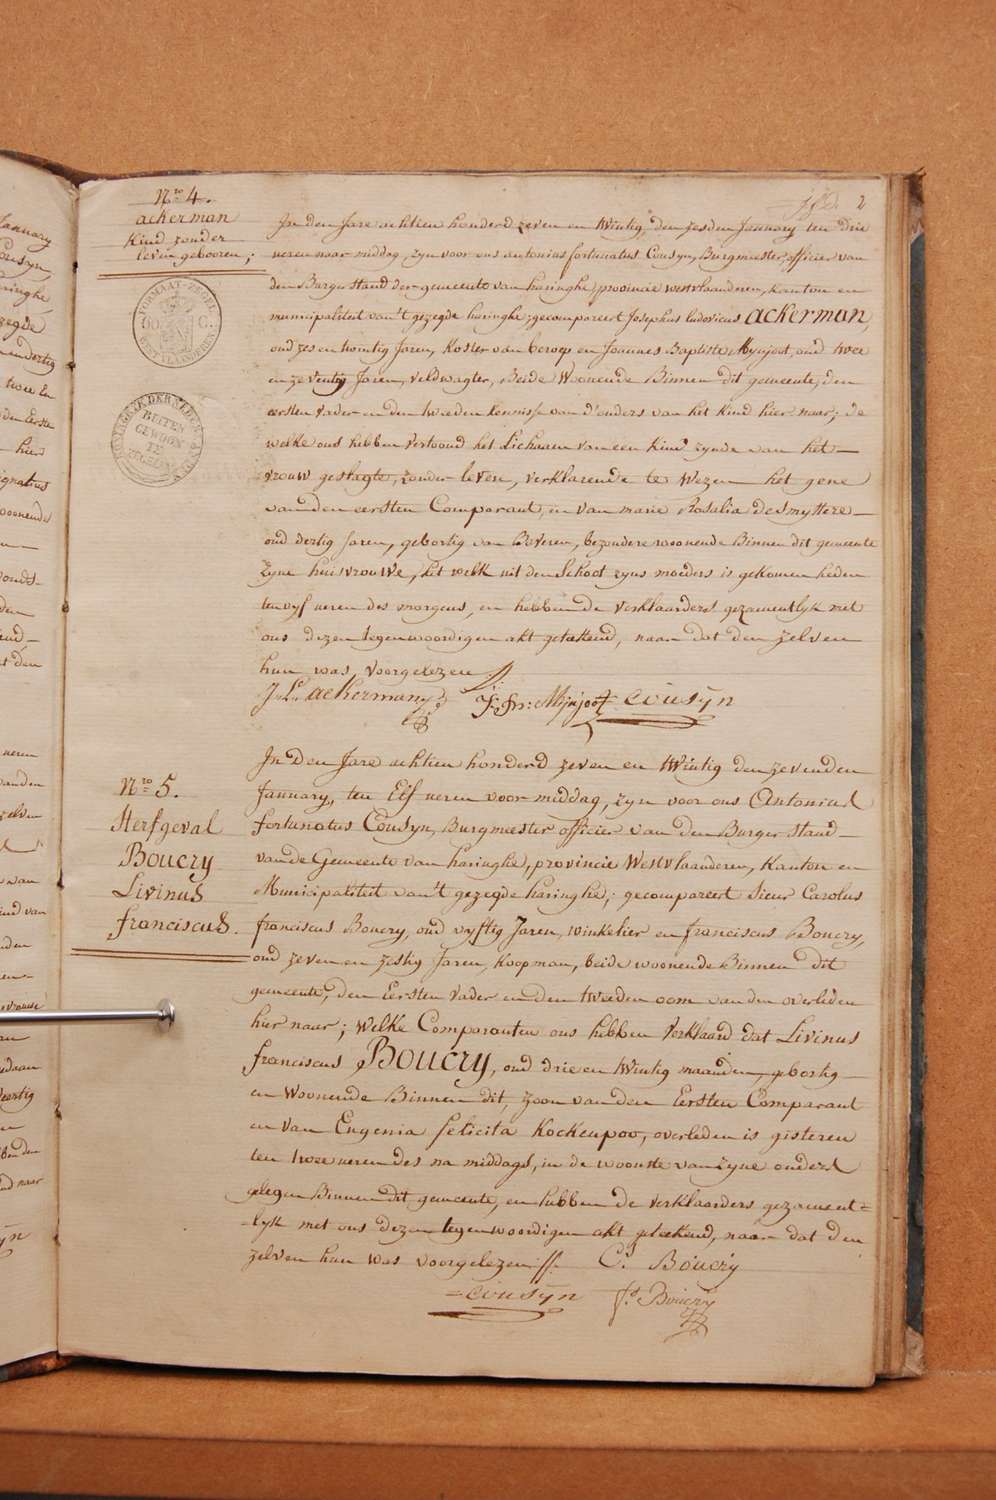 2
Nro 4.
ackerman
Kind zonder
leven gebooren;
FORMAAT-ZEGEL
WEST VLAANDEREN
BUITEN
GEWOON
In den Jare achtien honderd zeven en twintig, den zesden January ten drie
ueren naer middag, zyn voor ons antonius fortunatus Cousyn, Burgmeester officier van
den Burger Stand der gemeente van haringhe, provincie westvlaanderen, kanton en
municipaliteit van't gezegde haringhe; gecompareert Josephus ludovicus ackerman,
oud zes en twintig Jaren, Koster van beroep en Joannes Baptiste Mynjoot, oud twee
en zeventig Jaren, veldwagter, Beide Woonende Binnen dit gemeente, den
eersten vader en den tweeden kennisse van d'ouders van het kind hier naer; de
welke ons hebben vertoond het Lichaam van een kind zynde van het
vrouw geslagte, zonder leven, verklarende te wezen het gene
van den eersten Comparant, en van marie Rosalia desmyttere
oud dertig Jaren, gebortig van Beveren, bezondere woonende Binnen dit gemeente
Zyne huisvrouwe, het welk uit den Schoot zyns moeders is gekomen heden
ten vyf ueren des morgens, en hebben de verklaarders gezamentlyk met
ons dezen tegenwoordigen akt geteekend, naer dat den zelven
hun was voorgelezen
J. L. ackerman J: Bte: Mynjoot Cousyn
Nro 5.
Sterfgeval
Boucry
Livinus
franciscus.
In den Jare achtien honderd zeven en twintig den zevenden
January, ten Elf ueren voor middag, zyn voor ons Antonius
fortunatus Cousyn, Burgmeester officier van den Burger Stand
van de Gemeente van haringhe, provincie Westvlaanderen, Kanton en
Municipaliteit van't gezegde haringhe; gecompareert Sieur Carolus
franciscus Boucry, oud vyftig Jaren, winkelier en franciscus Boucry,
oud zeven en zestig Jaren, Koopman, beide woonende Binnen dit
gemeente, den Eersten vader en den tweeden oom van den overleden
hier naer; welke Comparanten ons hebben verklaard dat Livinus
franciscus Boucry, oud drie en twintig maanden, gebortig
en Woonende Binnen dit, zoon van den Eersten Comparant
en van Eugenia felicita Kockenpoo, overleden is gisteren
ten twee ueren des na middags, in de woonste van zyne ouders
gelegen Binnen dit gemeente, en hebben de verklaarders gezament=
=lyk met ons dezen tegenwoordigen akt geteekend, naer dat den
zelven hun was voorgelezen C. Boucry
Cousyn fs Boucry